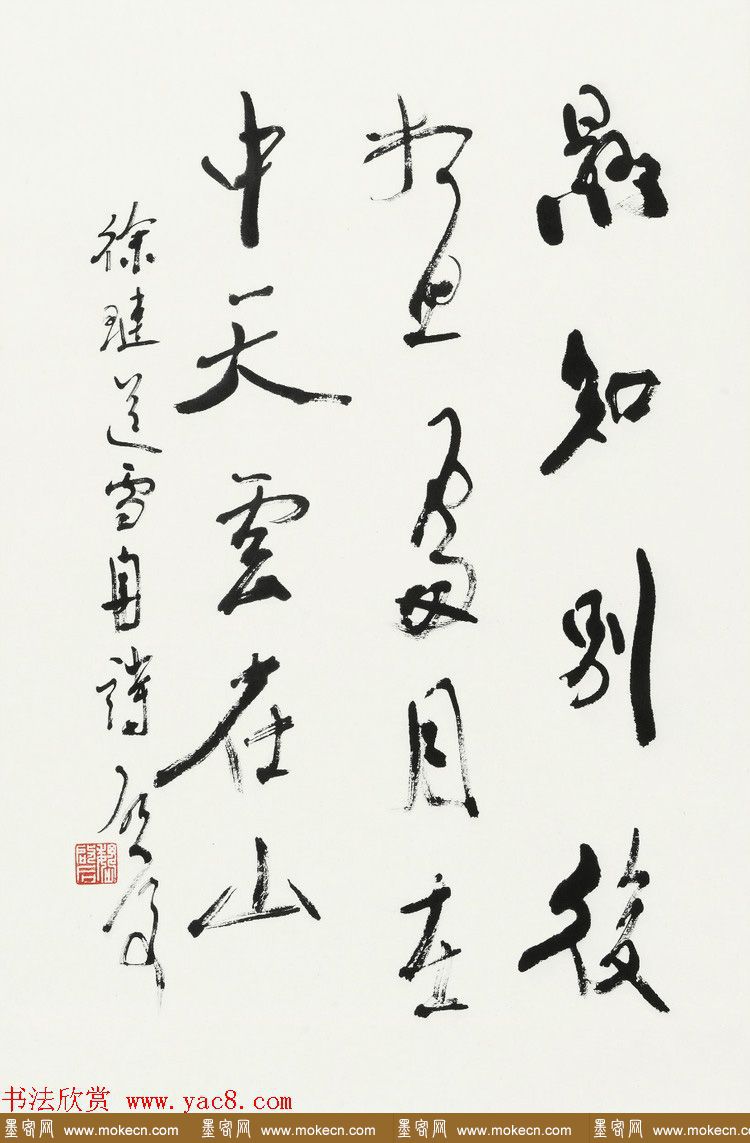 懸知別後
相思處月在
中天雲在山
徐璉送雪舟詩
书法欣赏 www.yac8.com
墨客网 www.mokecn.com 墨客网 www.mokecn.com 墨客网 www.mokecn.com 墨客网 www.mokecn.com